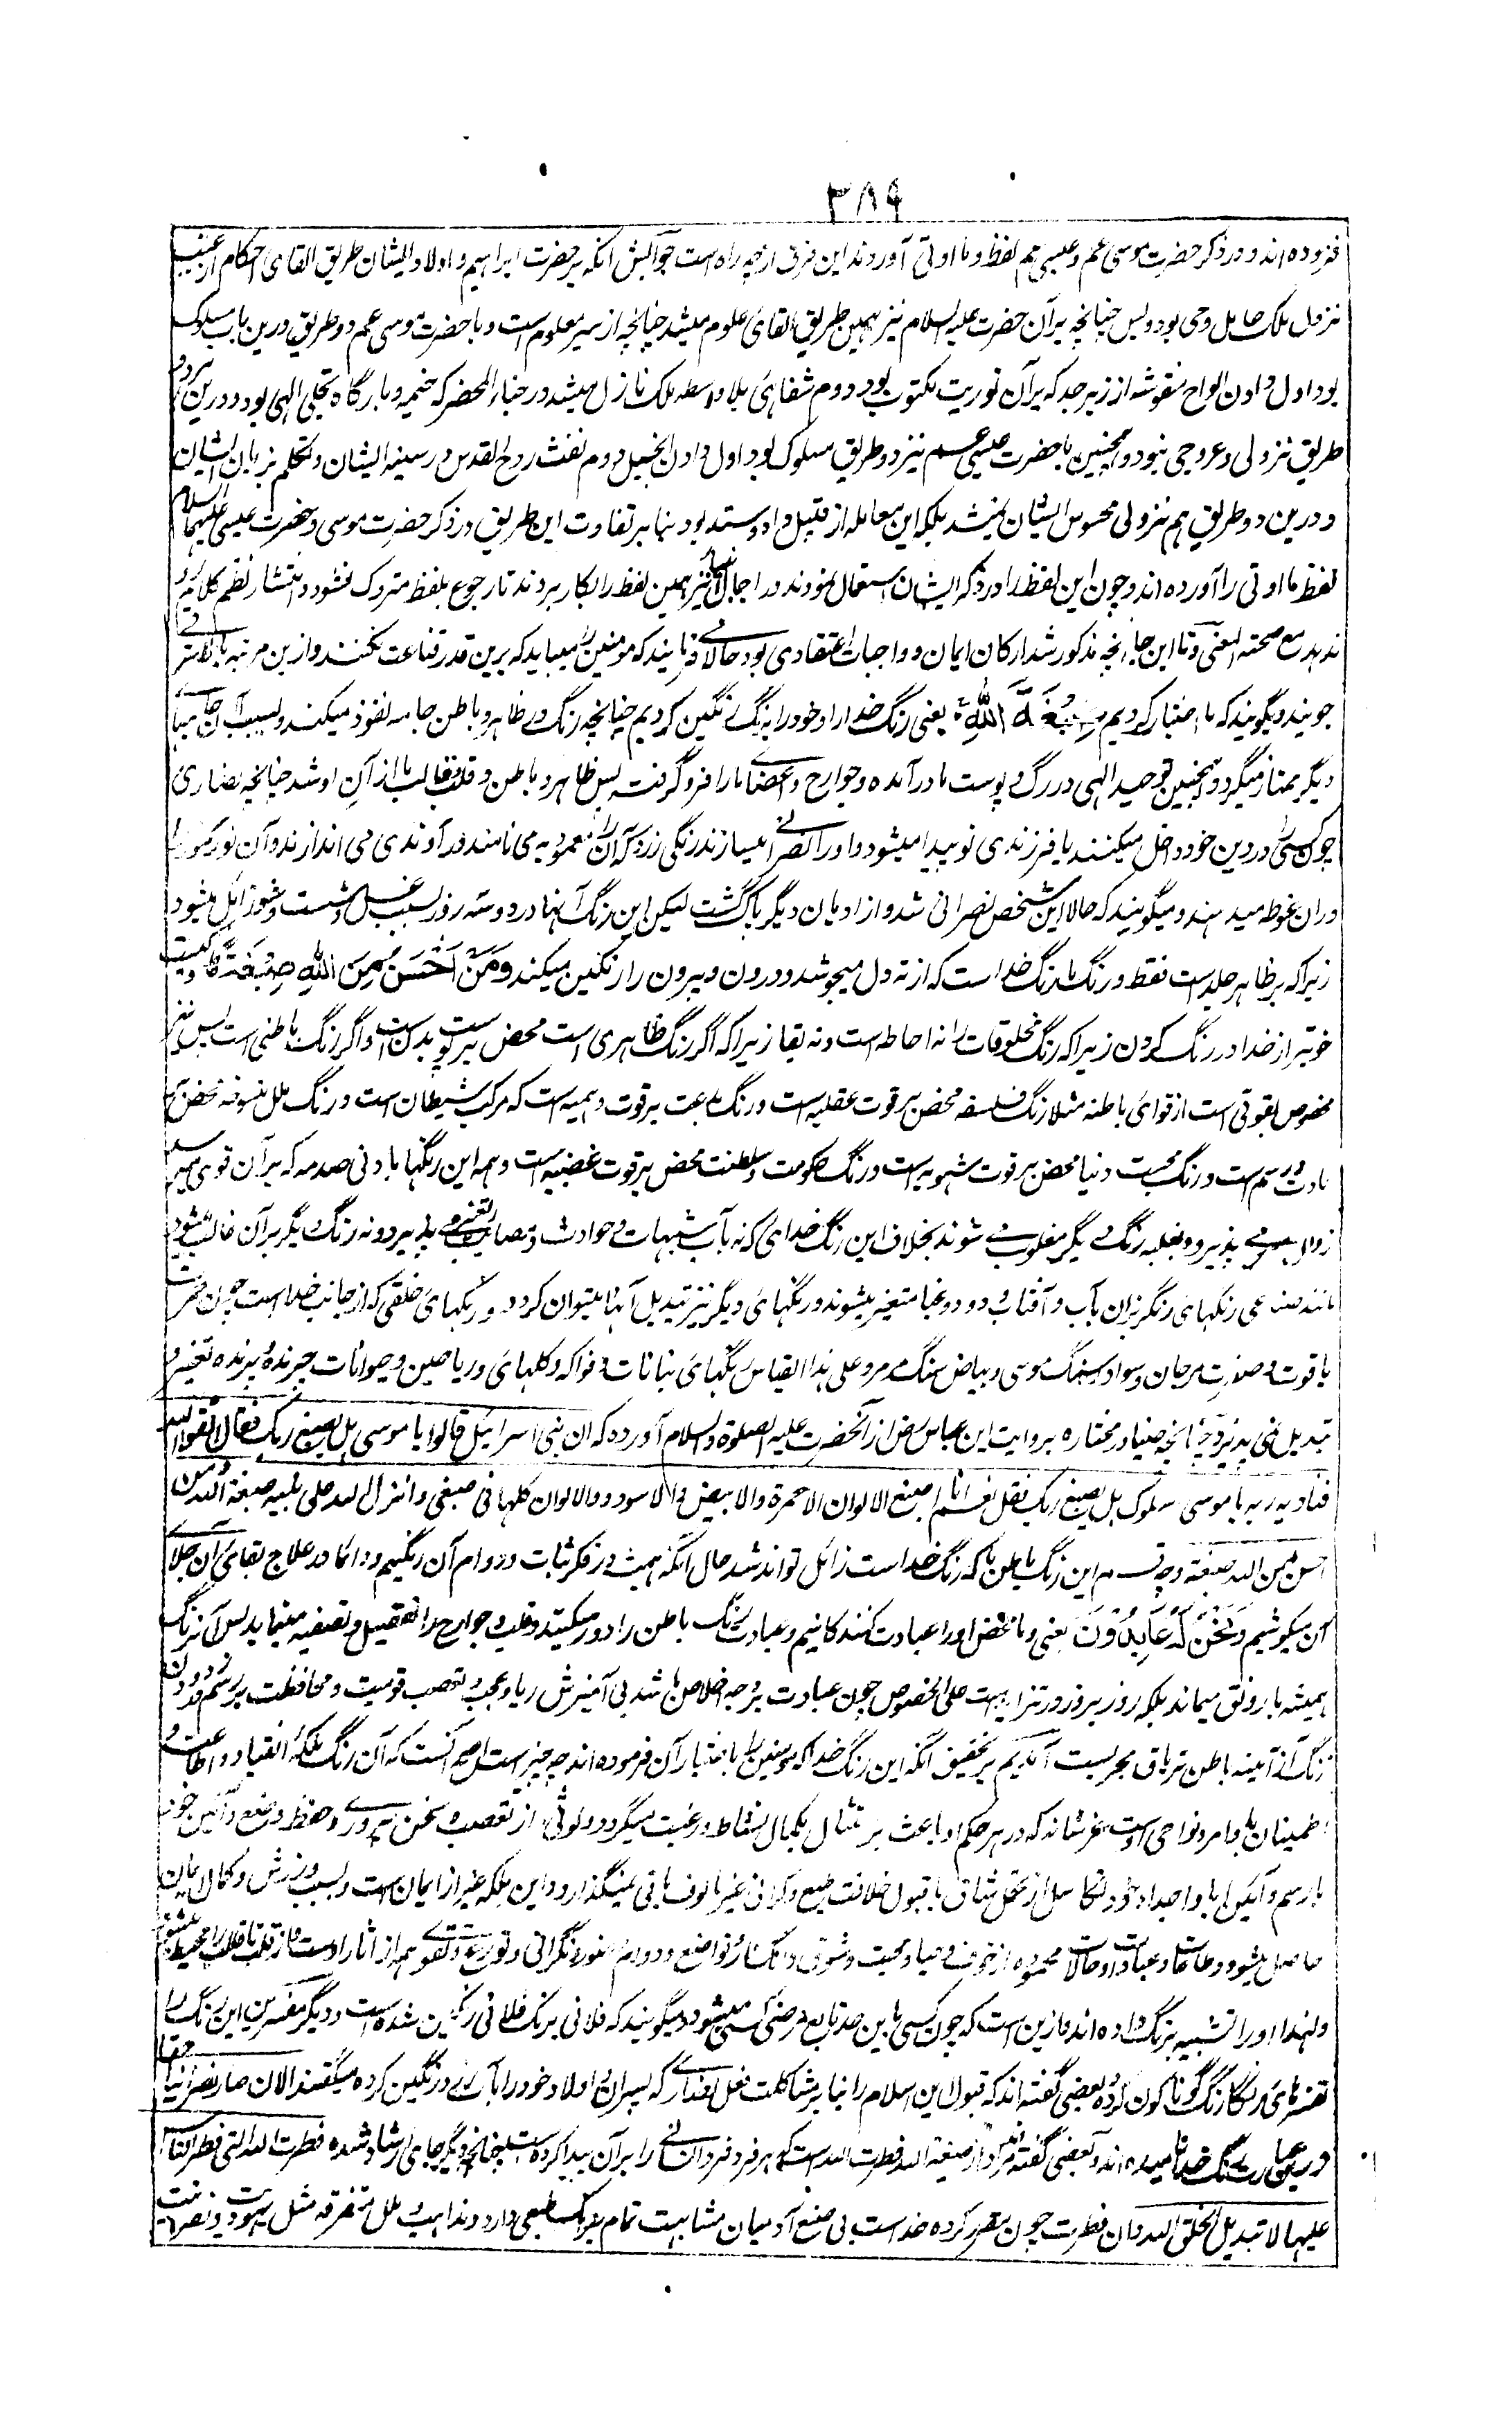 ۳۸۹
فزوده اند و در ذکر حضرت موسی عم و عیسی عم لفظ و ما اوتی آوردند این فرق از چه راه است جوابش آنکه بر حضرت ابراهیم و اولاد ایشان طریق القای احکام از غیب
نزول ملک حامل وحی بود و بس چنانچه بر آن حضرت علیه السلام نیز بهمین طریق القای علوم میشد چنانچه از سیر معلوم است و با حضرت موسی عم دو طریق درین باب مسلوک
بود اول دادن الواح منقوشه از زبرجد که بر آن توریت مکتوب بود دوم شفاهی بلا واسطه ملک نازل میشد در خباء المحضر که خیمه و بارگاه تجلی الهی بود و درین هر دو
طریق نزولی و عروجی نبود و همچنین با حضرت عیسی عم نیز دو طریق مسلوک بود اول دادن انجیل دوم نفث روح القدس در سینه ایشان و تکلم بزبان ایشان
و درین دو طریق هم نزولی محسوس ایشان نمیشد بلکه این معامله از قبیل داد و ستد بود بنا بر تفاوت این طریق در ذکر حضرت موسی و حضرت عیسی علیهما السلام
لفظ ما اوتی را آورده اند و چون این لفظ را در ذکر ایشان استعمال نمودند در اجمال انبیا نیز همین لفظ را بکار بردند تا رجوع بلفظ متروک نشود و انتشار نظم کلام رو
ندهد مع صحة المعنی و تا این جا آنچه مذکور شد ارکان ایمان و واجبات اعتقادی بود حالا می فرمایند که مومنین را میباید که برین قدر قناعت نکنند و ازین مرتبه بالاتر
جویند و بگویند که ما اختیار کردیم صِبْغَةَ اللّٰهِ یعنی رنگ خدا را و خود را برنگ او رنگین کردیم چنانچه رنگ در ظاهر و باطن جامه نفوذ میکند و بسبب آن جامه از جامهای
دیگر ممتاز میگردد همچنین توحید الهی در رگ و پوست ما در آمده و جوارح و اعضای ما را فرو گرفت پس ظاهر و باطن و قلب و قالب ما از آن او شد چنانچه نصاری
چون کسی را در دین خود داخل میکنند یا فرزندی نو پیدا میشود و او را نصرانی میسازند رنگی زرد که آن را معمودیه می نامند در آوندی می اندازند و آن نو
در آن غوطه میدهند و میگویند که حالا این شخص نصرانی شد و از ادیان دیگر پاک گشت لیکن این رنگ آنها در دو سه روز بسبب غسل و شست و شو زایل میشود
زیرا که بر ظاهر جلد است فقط و رنگ ما رنگ خدا است که از ته دل میجوشد و درون و بیرون را رنگین میکند وَمَنْ اَحْسَنُ مِنَ اللّٰهِ صِبْغَةً و کیست
خوبتر از خدا در رنگ کردن زیرا که رنگ مخلوقات را نه احاطه است و نه بقا زیرا که اگر رنگ ظاهری است محض بر پوست بدن است و اگر رنگ باطنی است پس نیز
مخصوص بقوتی است از قوای باطنه مثلا رنگ فلسفه محض بر قوت عقلیه است و رنگ بدعت بر قوت وهمیه است که مرکب شیطان است و رنگ ملل منسوخه محض بر
عادت و رسم است و رنگ محبت دنیا محض بر قوت شهویه است و رنگ حکومت و سلطنت محض بر قوت غضبیه است و همه این رنگها بادنی صدمه که بر آن قوی میرسد
زوال می پذیرد و بغلبه رنگ دیگر مغلوب می شوند بخلاف این رنگ خدای که نه بآب شبهات و حوادث و مصائب تغیر می پذیرد و نه رنگ دیگر بر آن غالب میشود
مانند صناعی رنگهای رنگریزان بآب و آفتاب و دود و غبار متغیر میشوند و رنگهای دیگر نیز تبدیل آنها میتوان کرد و رنگهای خلقی که از جانب خدا است چون حمرت
یاقوت و صفرت مرجان و سواد سنگ موسی و بیاض سنگ مرمر و علی هذا القیاس رنگهای نباتات و فواکه و گلهای و ریاحین و حیوانات چرنده و پرنده تغیر و
تبدیل نمی پذیرد چنانچه ضیاء در مختاره بروایت ابن عباس رض از آنحضرت علیه الصلوة و السلام آورده که ان بنی اسرائیل قالوا یا موسی هل یصبغ ربک فقال اتقوا الله
فناداه ربه یا موسی سئلوک هل یصبغ ربک فقل نعم انا اصبغ الالوان الاحمر والابیض والاسود والالوان کلها فی صبغی و انزل الله علی نبیه صبغة الله و من
احسن من الله صبغة و چه قسم این رنگ باطن ما که رنگ خدا است زائل تواند شد حال آنکه همیشه در فکر ثبات و دوام آن رنگیم و دائما در علاج بقای آن جلای
آن میکوشیم وَنَحْنُ لَهُ عَابِدُوْنَ یعنی و ما محض او را عبادت کنندگانیم و عبادت زنگ باطن را دور میکند و قلب و جوارح را تصقیل و تصفیه مینماید پس آن رنگ
همیشه با رونق میماند بلکه روز بروز در تزاید است علی الخصوص چون عبادت بر وجه اخلاص باشد بی آمیزش ریا و عجب و تعصب قومیت و محافظت بر رسم
زنگ از آئینه باطن تریاق مجرب است آمدیم بر تحقیق آنکه این رنگ خدا که مومنین را باختیار آن فرموده اند چه چیز است اصح آنست که آن رنگ ملکه انقیاد و اطاعت و
اطمینان باوامر و نواهی اوست عز شانه که در هر حکم او باعث بر امتثال بکمال نشاط و رغبت میگردد و لوثی از تعصب و سخن پروری و حفظ وضع و آئین خود
یا رسم و آئین آبا و اجداد خود و تکاسل از تحمل مشاق یا قبول خلافت طبع و گرانی غیر مالوف باقی نمیگذارد و این ملکه غیر از ایمان است و بسبب ورزش و کمال ایمان
حاصل میشود و طاعات و عبادات و حالات محموده از خوف و حیا و محبت و شوق و انکسار و تواضع و دوام حضور و نگرانی و تورع و تقوی هم از آثار اوست
ولهذا او را تشبیه برنگ داده اند و ازین است که چون کسی باین حد تابع مرضی کسی میشود میگویند که فلانی برنگ فلانی رنگین شده است و دیگر مفسرین این رنگ را
تفسیرهای رنگارنگ گوناگون کرده بعضی گفته اند که قبول دین اسلام را بنابر مشاکلت فعل نصاری که پسران و اولاد خود را بآب زرد رنگین کرده میگفتند الان صار نصرانیا حقا
درین عبارت رنگ خدا نامیده اند و بعضی گفته اند مراد از صبغة الله فطرت الله است که هر فرد فرد انسانی را بر آن پیدا کرده است چنانچه دیگر جای ارشاد شده فطرت الله التی فطر الناس
علیها لا تبدیل لخلق الله و آن فطرت چون مقرر کرده خدا است بی صنع آدمیان مشابهت تمام برنگ طبعی دارد و مذاهب و ملل متفرقه مثل یهودیت و نصرانیت